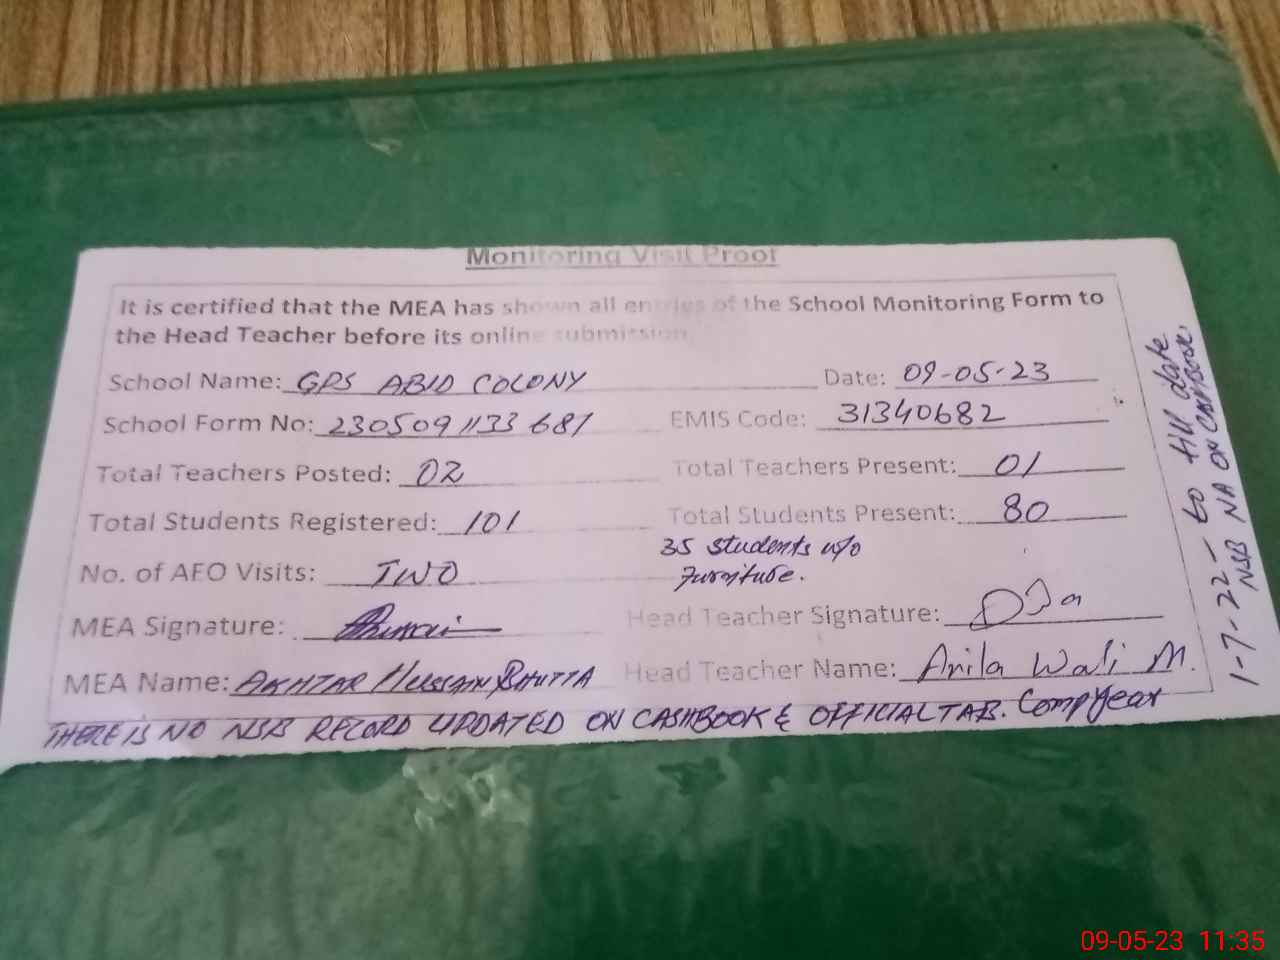 Monitoring Visit Proof
It is certified that the MEA has shown all entries of the School Monitoring Form to
the Head Teacher before its online submission
School Name: GPS ABID COLONY Date: 09-05-23
School Form No: 2305091133681 EMIS Code: 31340682
Total Teachers Posted: 02 Total Teachers Present: 01
Total Students Registered: 101 Total Students Present: 80
35 students w/o
furniture.
No. of AEO Visits: TWO
MEA Signature: Head Teacher Signature:
MEA Name: AKHTAR HUSSAIN BHUTTA Head Teacher Name: Anila Wali M.
THERE IS NO NSB RECORD UPDATED ON CASHBOOK & OFFICIAL TAB.
1-7-22 - to till date
NSB NA ON CASHBOOK
09-05-23 11:35